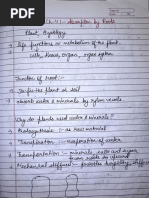 Ch-4:- Absorption by Roots
Plant Physiology
→ Life functions or metabolism of the plant.
cells, tissue, organ, organ system
Function of root:-
→ To fix the plant in soil
→ absorb water & minerals by xylem vessels
Why do plants need water & minerals?
→ Photosynthesis :- as raw material
→ Transpiration :- evaporation of water
→ Transportation :- minerals, water and sugar
from roots to
→ Mechanical stiffness :-